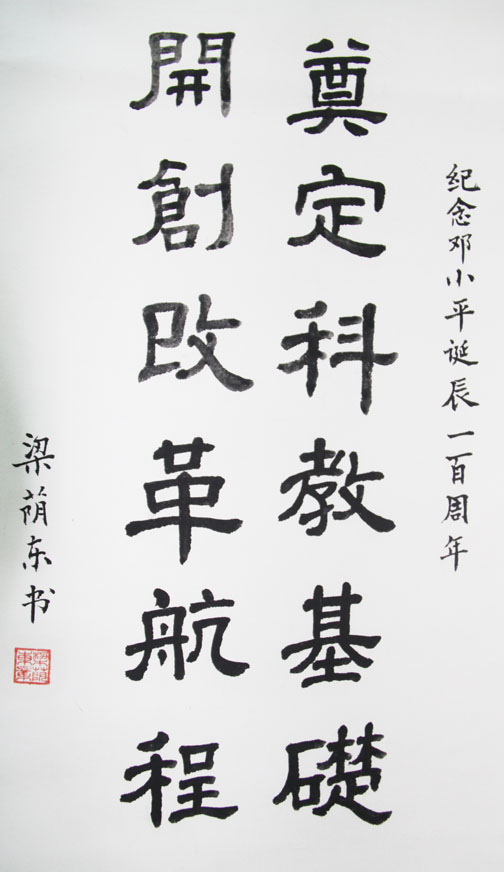 纪念邓小平诞辰一百周年
奠定科教基礎
開創改革航程
梁荫东书